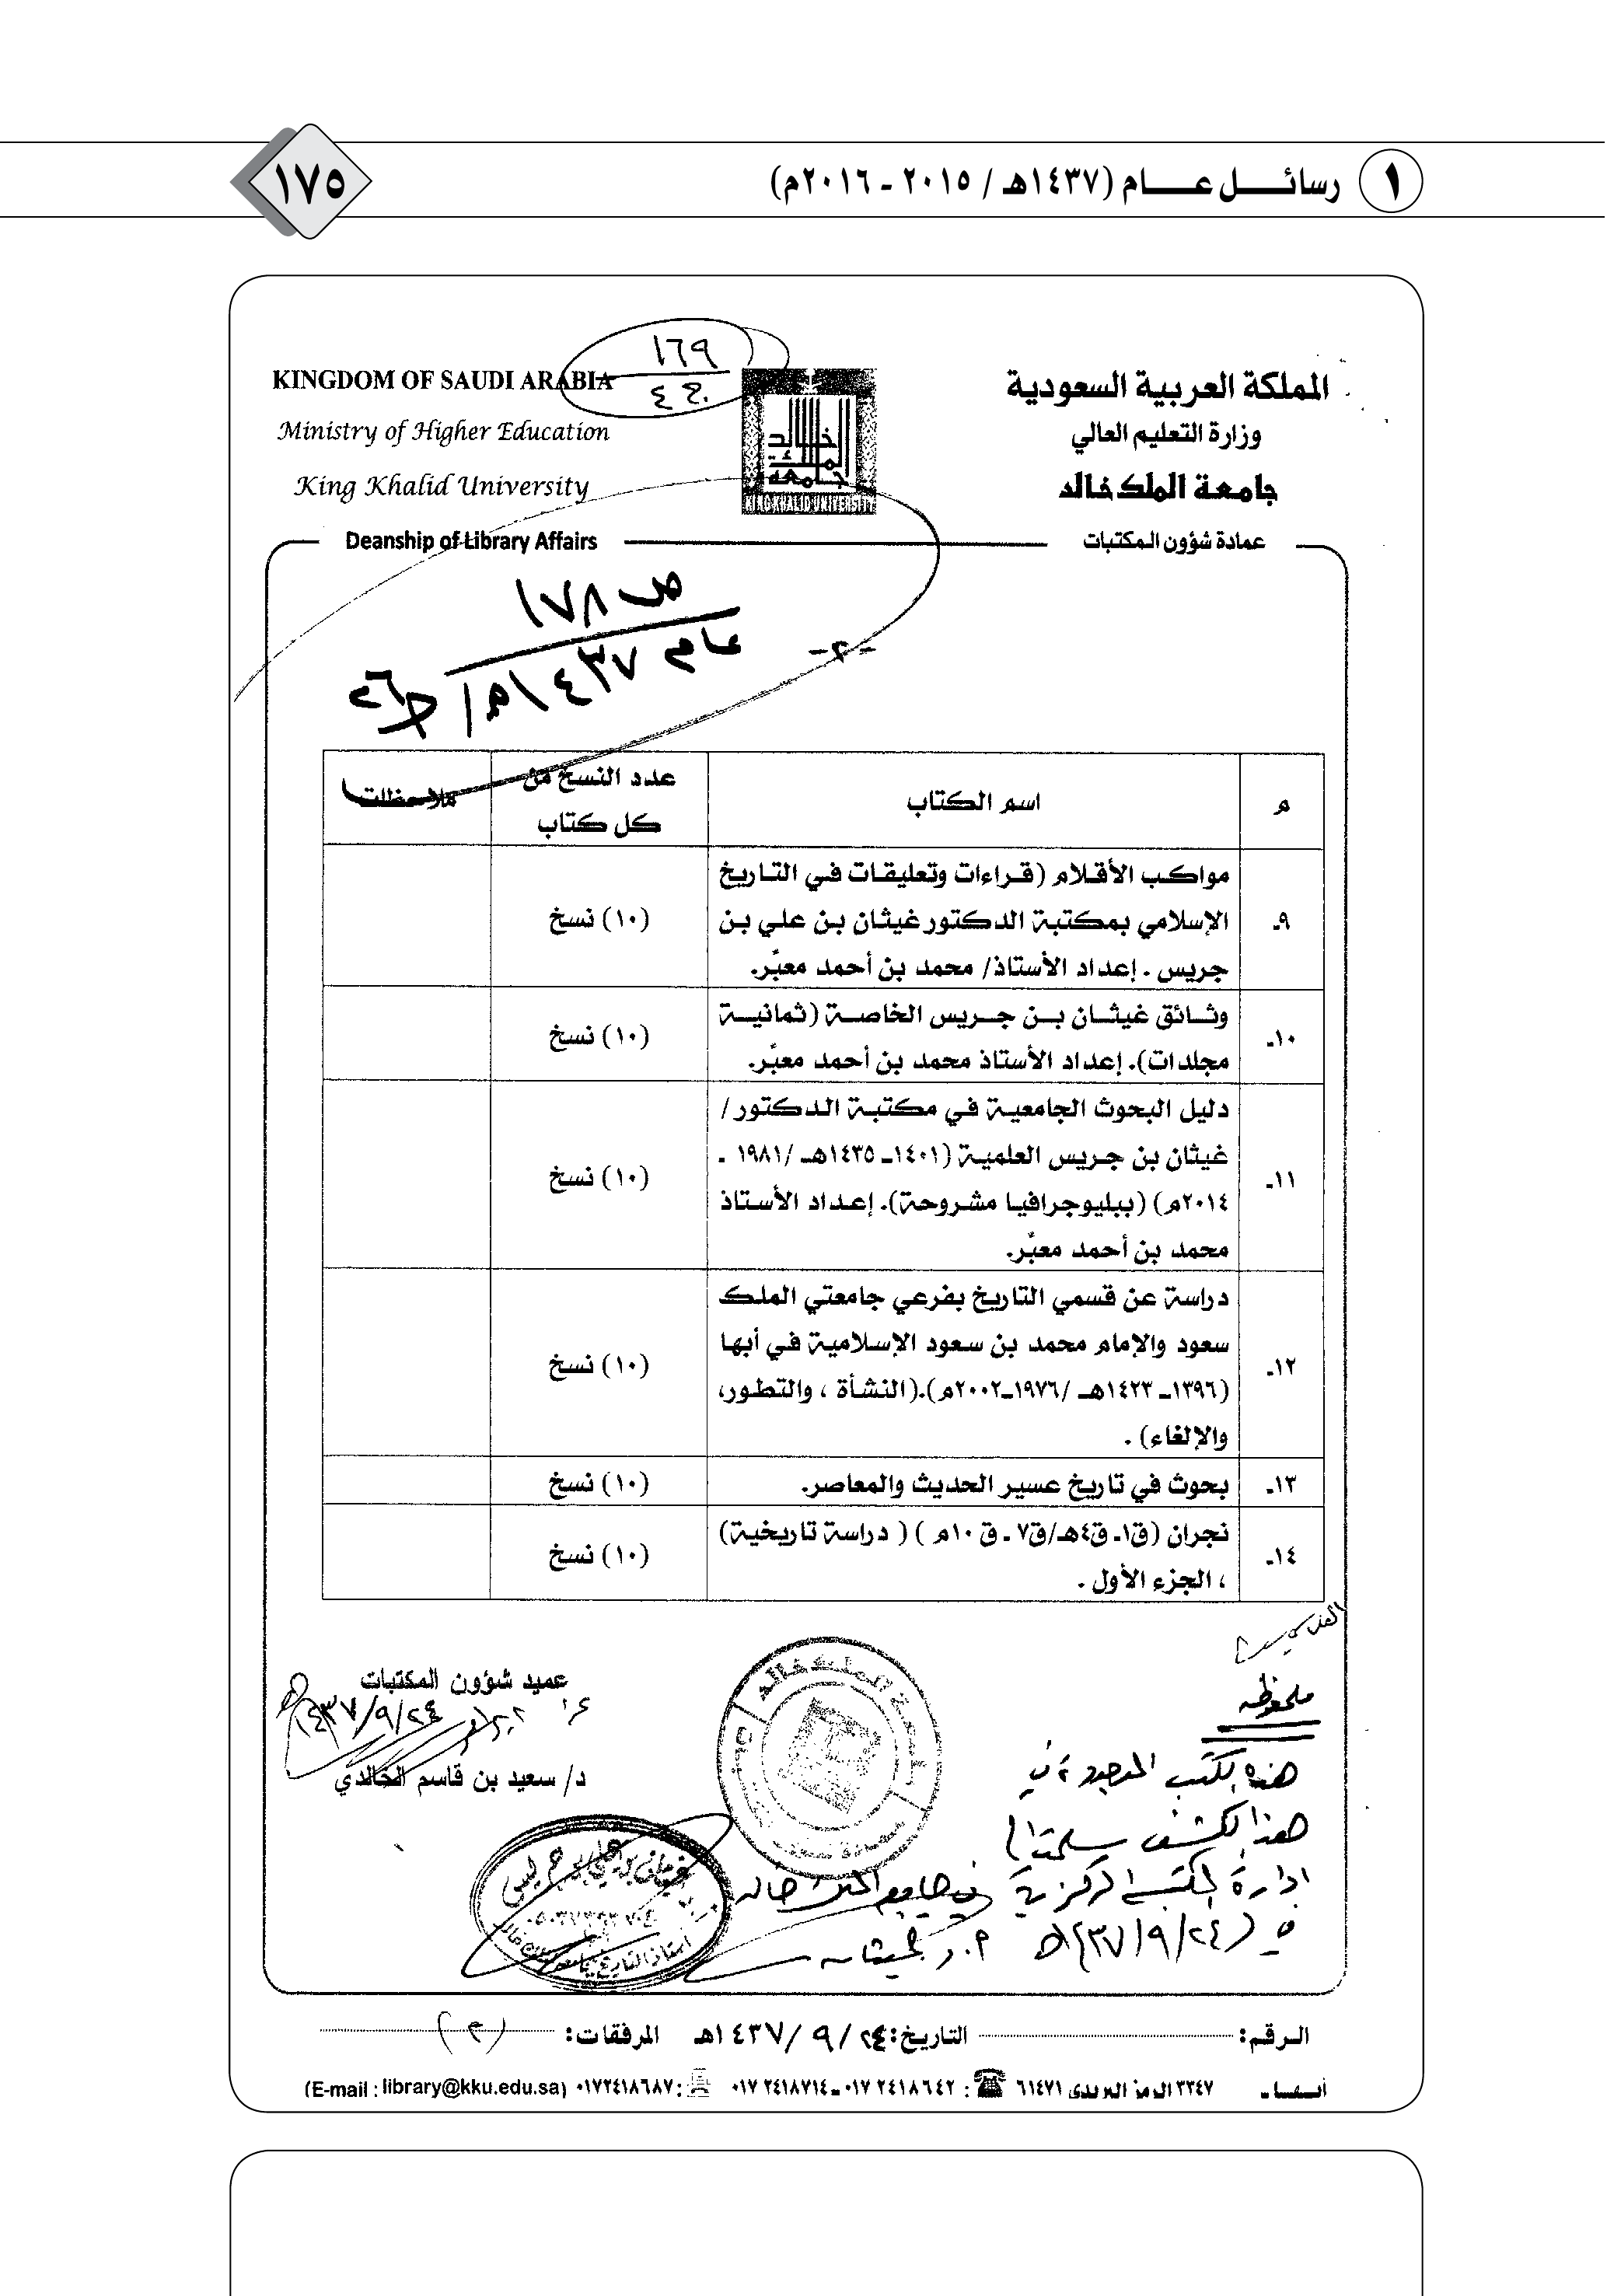 ١ رسائـــل عـــام (١٤٣٧هـ / ٢٠١٥ - ٢٠١٦م)
١٧٥
١٦٩
ج ٤
KINGDOM OF SAUDI ARABIA
Ministry of Higher Education
King Khalid University
Deanship of Library Affairs
المملكة العربية السعودية
وزارة التعليم العالي
جامعة الملك خالد
عمادة شؤون المكتبات
جامعة الملك خالد
KING KHALID UNIVERSITY
ص ١٧٨
عام ١٤٣٧هـ / ج٢٦
-٢-
م اسم الكتاب عدد النسخ من كل كتاب ملاحظات
٩ـ مواكب الأقلام (قراءات وتعليقات في التاريخ
الإسلامي بمكتبة الدكتور غيثان بن علي بن
جريس . إعداد الأستاذ/ محمد بن أحمد معبّر.
(١٠) نسخ
١٠ـ وثائق غيثان بن جريس الخاصة (ثمانية
مجلدات). إعداد الأستاذ محمد بن أحمد معبّر.
(١٠) نسخ
١١ـ دليل البحوث الجامعية في مكتبة الدكتور /
غيثان بن جريس العلمية (١٤٠١ـ ١٤٣٥هـ /١٩٨١ ـ
٢٠١٤م) (ببليوجرافيا مشروحة). إعداد الأستاذ
محمد بن أحمد معبّر.
(١٠) نسخ
١٢ـ دراسة عن قسمي التاريخ بفرعي جامعتي الملك
سعود والإمام محمد بن سعود الإسلامية في أبها
(١٣٩٦ـ ١٤٢٣هـ /١٩٧٦ـ٢٠٠٢م).(النشأة ، والتطور،
والإلغاء) .
(١٠) نسخ
١٣ـ بحوث في تاريخ عسير الحديث والمعاصر.
(١٠) نسخ
١٤ـ نجران (ق١ـ ق٤هـ/ق٧ ـ ق ١٠م ) ( دراسة تاريخية)
، الجزء الأول .
(١٠) نسخ
عميد شؤون المكتبات
١٤٣٧/٩/٢٤هـ
د/ سعيد بن قاسم الخالدي
ملحوظة
هذه الكتب الموجودة في
هذا الكشف سلمتها
إدارة المكتبة المركزية في جامعة الملك خالد
في (٢٤/٩/٣٧هـ) أ.د غيثان
الرقم: التاريخ: ٢٤/ ٩ /١٤٣٧هـ المرفقات: (٢)
أبـهـا ـ ٣٢٤٧ الرمز البريدى ٦١٤٧١ : ٠١٧ ٢٤١٨٦٤٢ ـ ٠١٧ ٢٤١٨٧١٤ : ٠١٧٢٤١٨٦٨٧ (E-mail : library@kku.edu.sa)